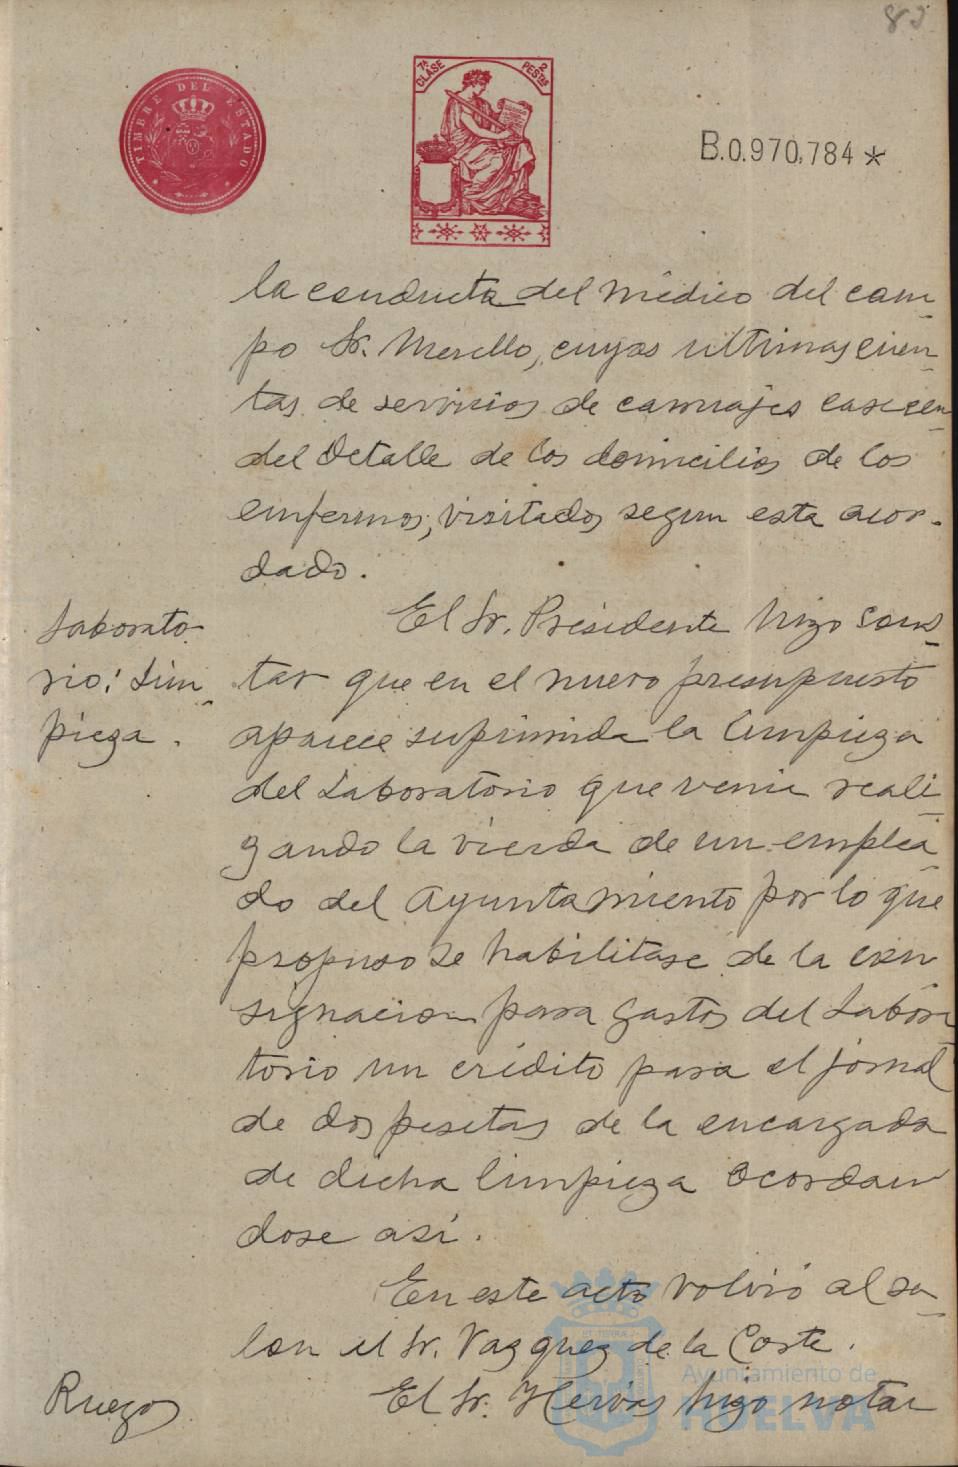 82
TIMBRE DEL ESTADO
7ª CLASE
2 PESTAS
B.0.970,784 *
la conducta del médico del cam
po Sr. Morillo, cuyas ultimas cuen
tas de servicios de carruajes carecen
del detalle de los domicilios de los
enfermos, visitados segun esta acor-
dado.
Laborato
rio: Lim
pieza.
El Sr. Presidente hizo cons
tar que en el nuevo presupuesto
aparece suprimida la limpieza
del Laboratorio que venia reali
zando la viuda de un emplea
do del Ayuntamiento por lo que
propuso se habilitase de la con
signacion para gastos del Labora
torio un crédito para el jornal
de dos pesetas de la encargada
de dicha limpieza acordan
dose así.
En este acto volvió al sa
lon el Sr. Vazquez de la Corte.
Ruegos
El Sr. Hervás hizo notar
Ayuntamiento de
HUELVA